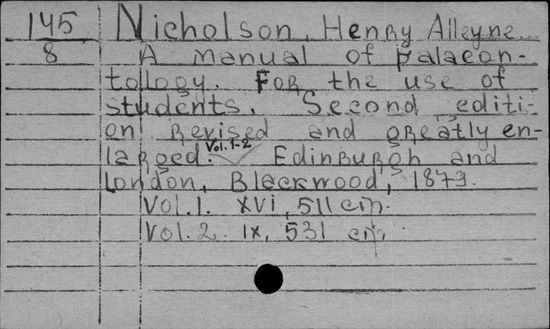 145 Nicholson, Henry Alleyne.
8 A manual of palaeon-
tology. For the use of
students. Second editi-
on revised and greatly en-
larged. Vol. 1-2 Edinburgh and
London, Blackwood, 1879.
Vol. 1. XVI, 511 стр.
Vol. 2. IX, 531 стр.